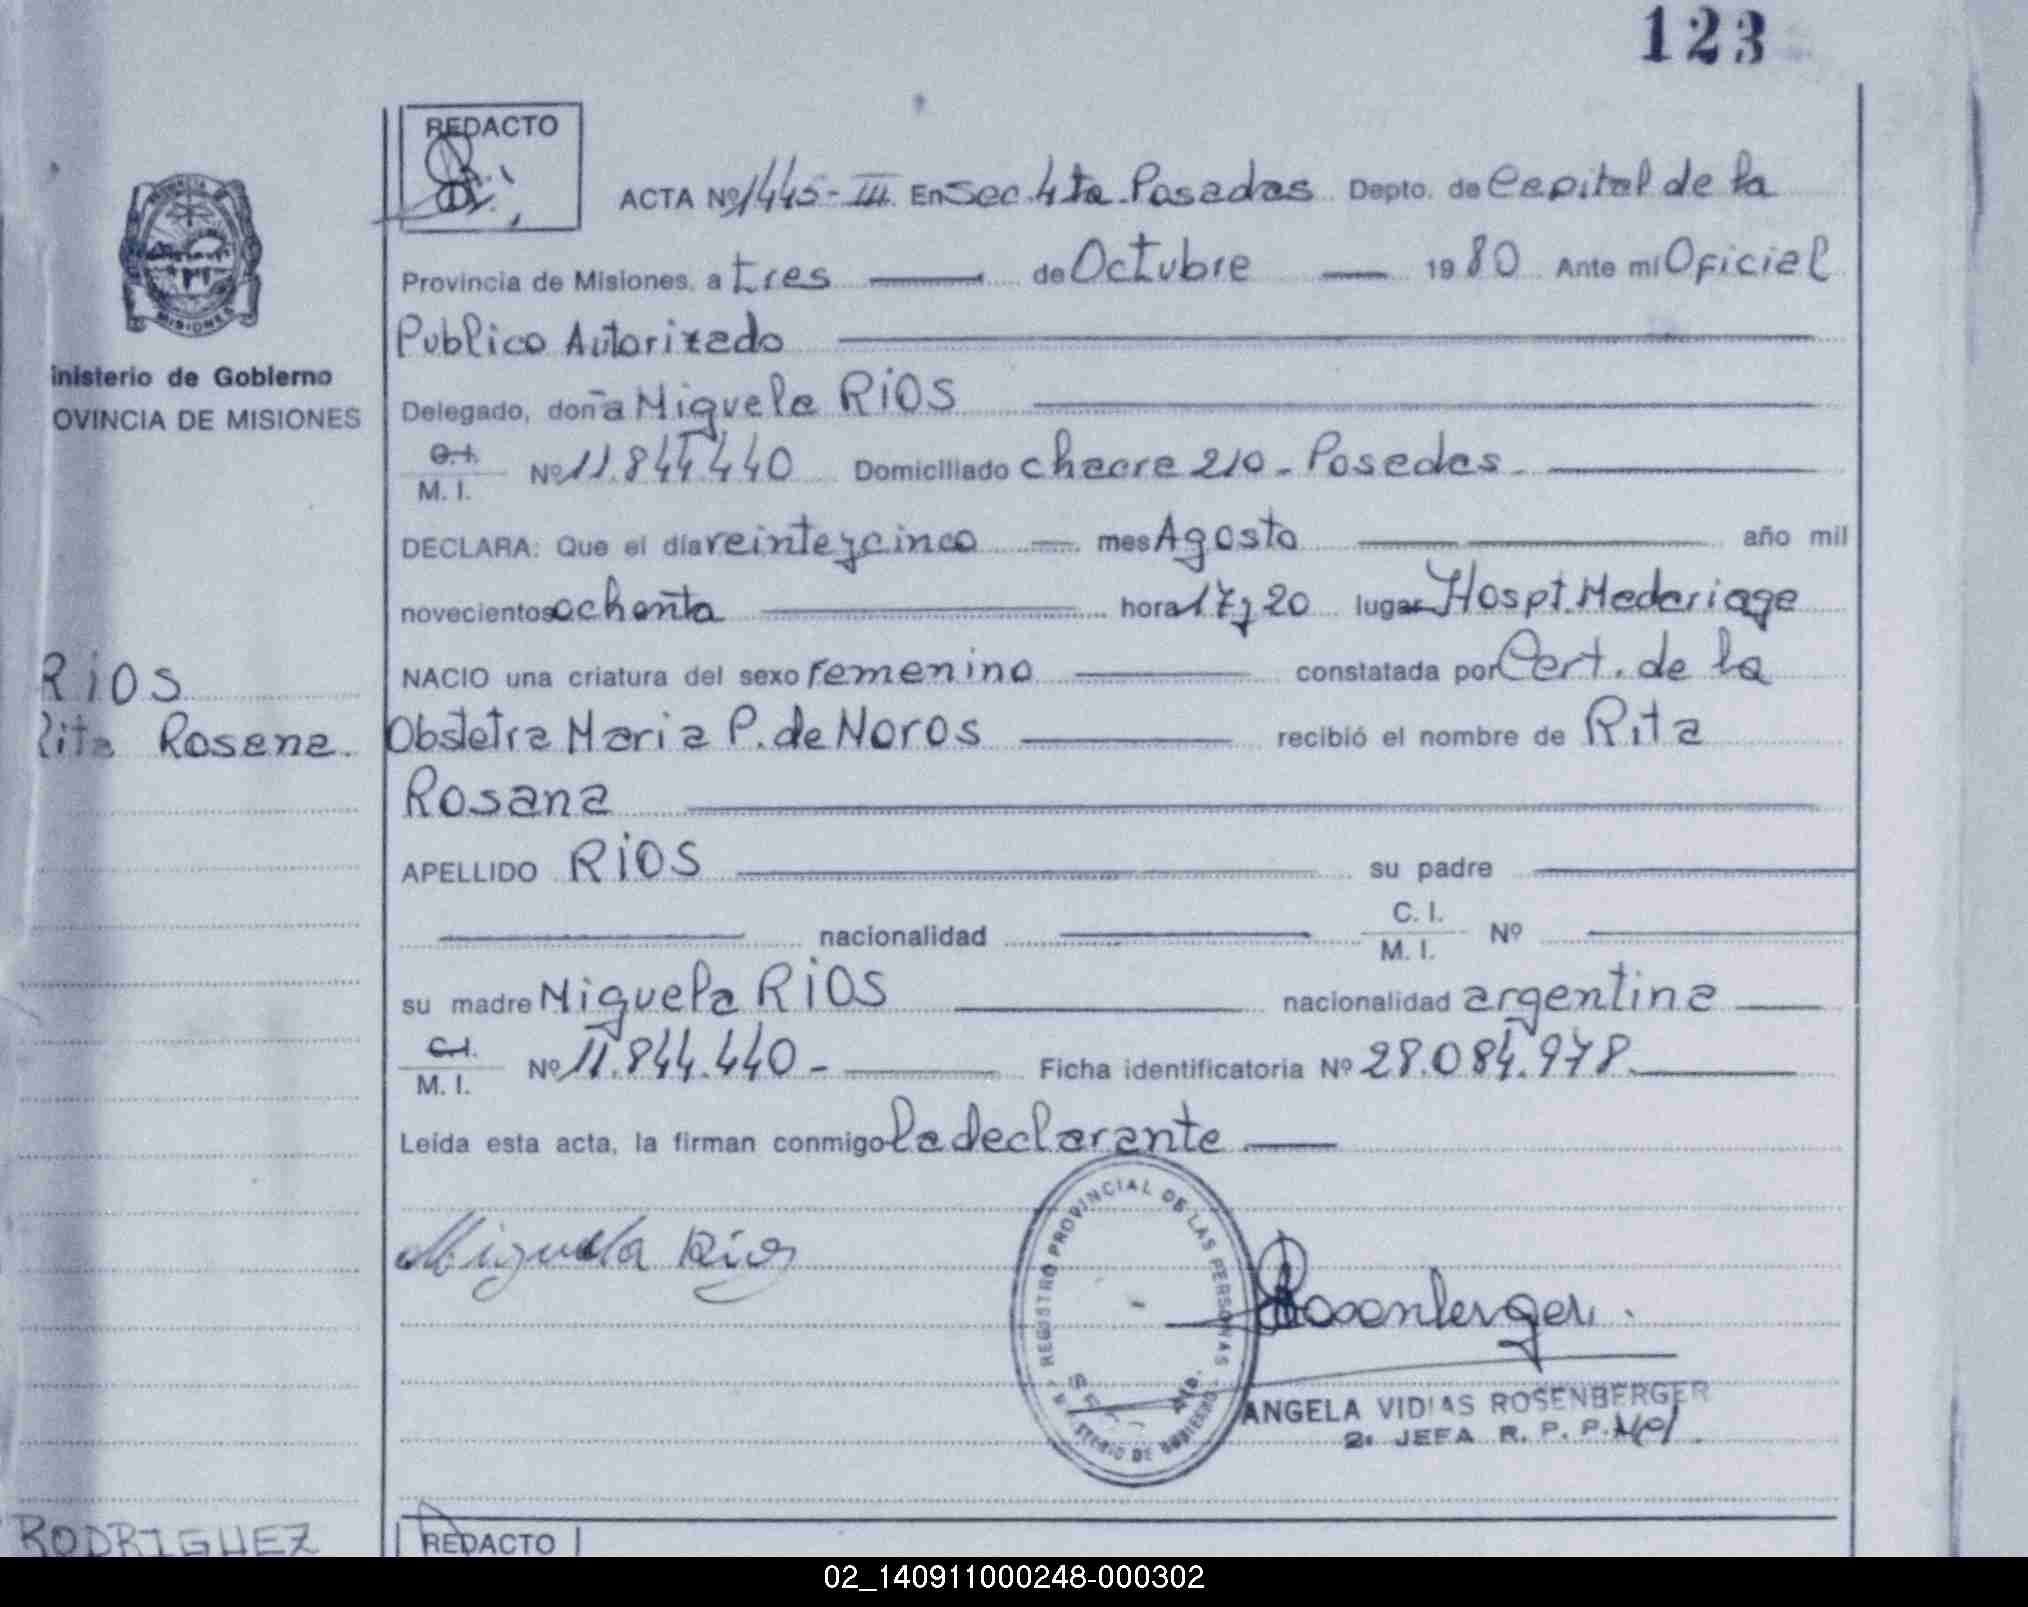 123
REDACTO
ACTA Nº 1445-III. En Sec. 4ta. Posadas Depto. de Capital de la
Provincia de Misiones, a tres de Octubre 1980 Ante mi Oficial
Publico Autorizado
inisterio de Gobierno
OVINCIA DE MISIONES
Delegado, doña Miguela RIOS
C.I. M. I. Nº 11.844.440 Domiciliado chacra 210 - Posadas -
DECLARA: Que el día veinteycinco mes Agosto año mil
novecientos ochenta hora 17y20 lugar Hospt. Madariaga
NACIO una criatura del sexo femenino constatada por Cert. de la
RIOS
Rita Rosana.
Obstetra Maria P. de Noros recibió el nombre de Rita
Rosana
APELLIDO RIOS su padre
nacionalidad C. I. M. I. Nº
su madre Miguela RIOS nacionalidad argentina
C.I. M. I. Nº 11.844.440 - Ficha identificatoria Nº 28.084.978.
Leída esta acta, la firman conmigo la declarante
Miguela Ríos
REGISTRO PROVINCIAL DE LAS PERSONAS
Rosenberger
ANGELA VIDIAS ROSENBERGER
2ª JEFA R. P. P.
RODRIGUEZ
REDACTO
02_140911000248-000302